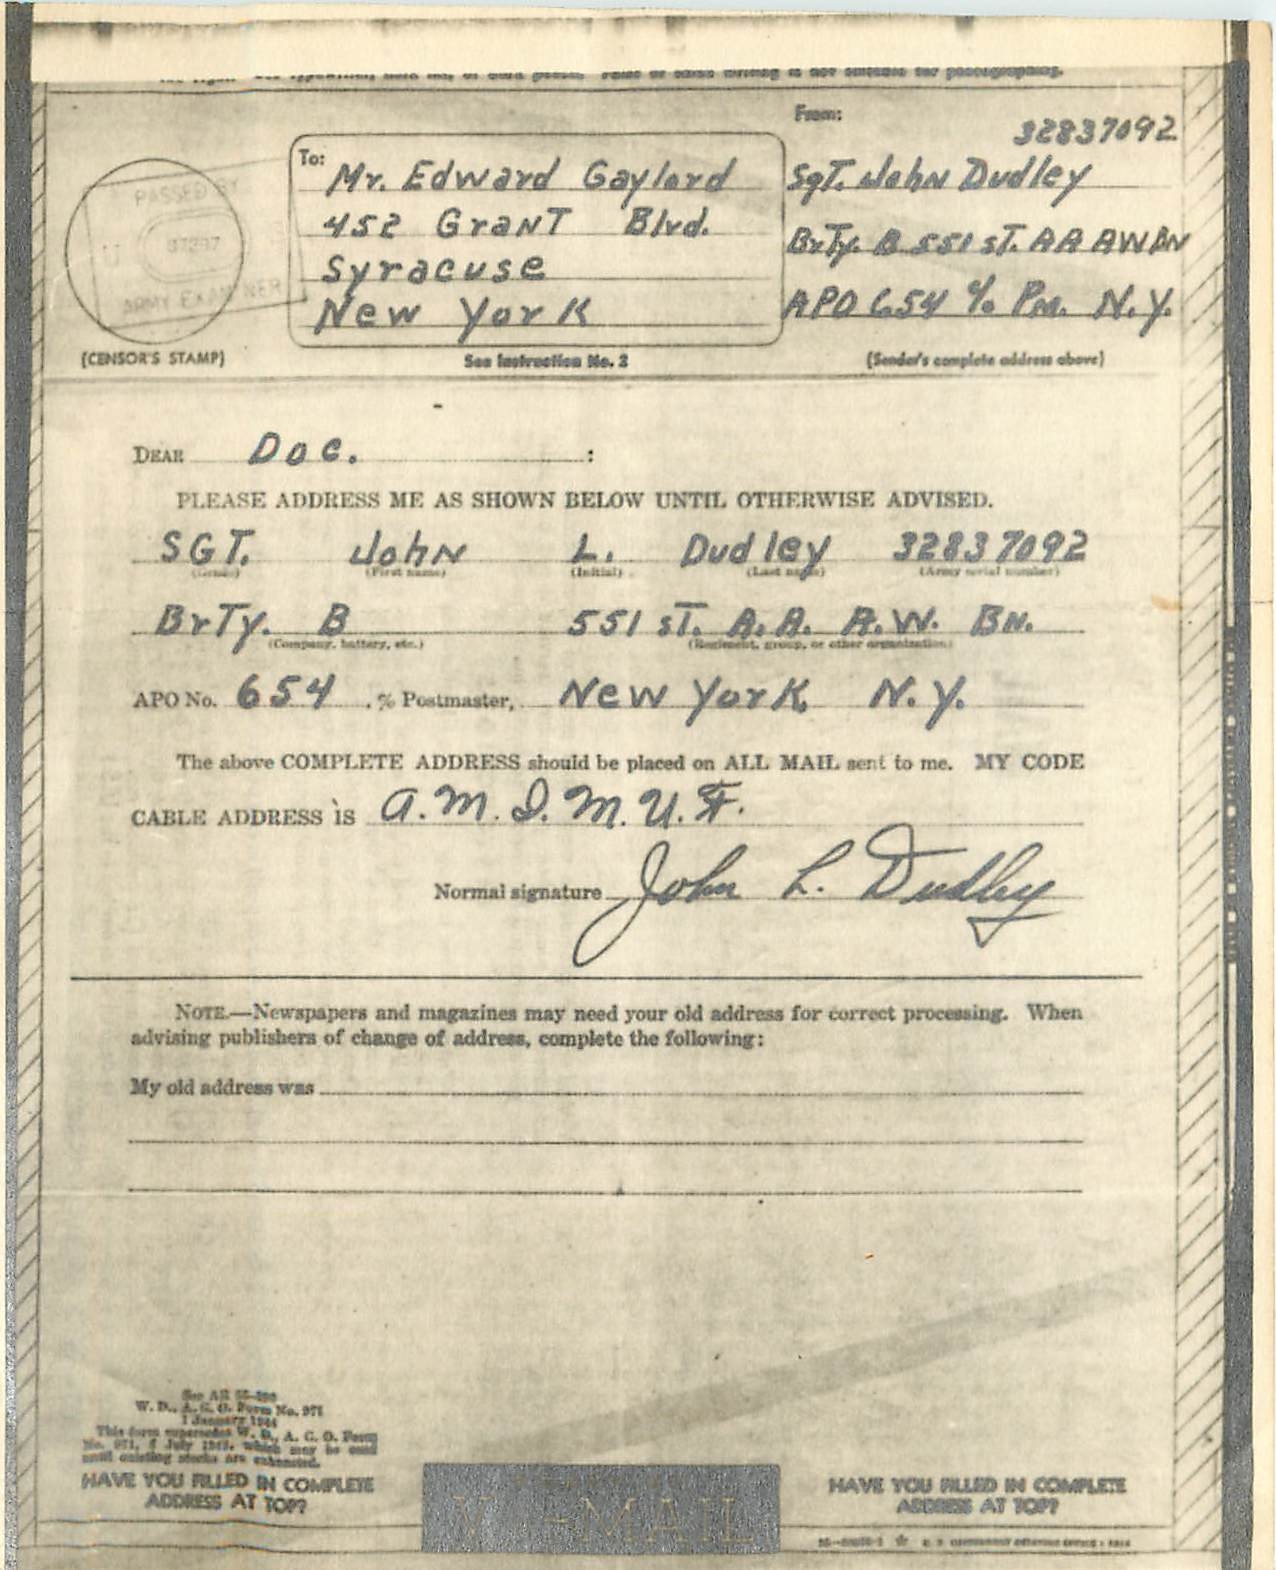 From:
32837092
To: Mr. Edward Gaylord
452 Grant Blvd.
Syracuse
New York
Sgt. John Dudley
BrTy. B 551 st. AA AW BN
APO 654 % PM. N.Y.
PASSED BY
ARMY EXAMINER
(CENSOR'S STAMP)
See Instruction No. 2
(Sender's complete address above)
DEAR Doc. :
PLEASE ADDRESS ME AS SHOWN BELOW UNTIL OTHERWISE ADVISED.
SGT. John L. Dudley 32837092
(Grade) (First name) (Initial) (Last name) (Army serial number)
BrTy. B 551 st. A.A. A.W. BN.
(Company, battery, etc.) (Regiment, group, or other organization)
APO No. 654 , % Postmaster, New York N.Y.
The above COMPLETE ADDRESS should be placed on ALL MAIL sent to me. MY CODE
CABLE ADDRESS IS A.M.I.M.U.F.
Normal signature John L. Dudley
NOTE.—Newspapers and magazines may need your old address for correct processing. When
advising publishers of change of address, complete the following:
My old address was
W. D., A. G. O. Form No. 971
1 January 1944
This form supersedes W. D., A. G. O. Form
No. 971, July 1943, which may be used
until existing stocks are exhausted.
HAVE YOU FILLED IN COMPLETE
ADDRESS AT TOP?
V-MAIL
HAVE YOU FILLED IN COMPLETE
ADDRESS AT TOP?